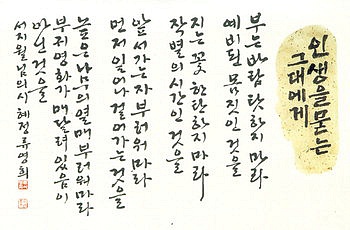 인생을 묻는
그대에게
부는 바람 탓하지 마라
예비된 몸짓인 것을
지는 꽃 한탄하지 마라
작별의 시간인 것을
앞서가는 자 부러워 마라
먼저 일어나 걸어가는 것을
높은 나무의 열매 부러워 마라
부귀영화가 매달려 있음이
아닌 것을
서지월님의 시 혜정 류영희